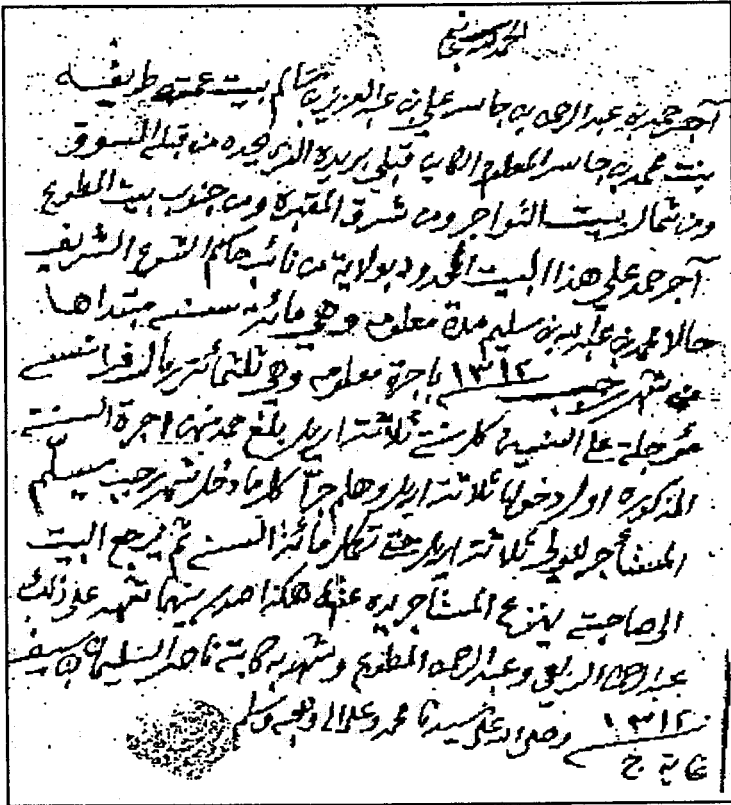 الحمد لله سبحانه
آجر حمد بن عبدالرحمن بن جاسر علي بن عبدالعزيز بن سالم بيت عمته طريفه
بنت محمد بن جاسر المعلوم الكاين قبلي بريدة الذي يحده من قبله السوق
ومن شمال بيت النواجر ومن شرق المقبره ومن جنوب بيت المطوع
آجر حمد علي هذا البيت المحدود بولاية من نائب حاكم الشرع الشريف
حالا محمد بن عبدالله بن سليم مدة معلومه وهي مائة سنه مبتداها
من شهر رجب ١٣١٢ باجرة معلومه وهي ثلثمائة ريال فرانسه
مؤجلة على السنين كل سنة ثلاثة اريل بلغ حمد منهن اجرة السنة
المذكوره اول دخولها ثلاثة اريل وهلم جرّا كل ما دخل شهر رجب يسلّم
المستأجر للولي ثلاثة اريل حتى تكمل مائة السنه ثم يرجع البيت
الى صاحبته ينزع المستاجر يده عنه هكذا صدر بينهما شهد على ذلك
عبدالرحمن الربعي وعبدالرحمن المطوع وشهد به كاتبه ناصر السليمان بن سيف
١٣١٢ وصلى الله على سيدنا محمد وعلى اله وصحبه وسلم
غاية ج